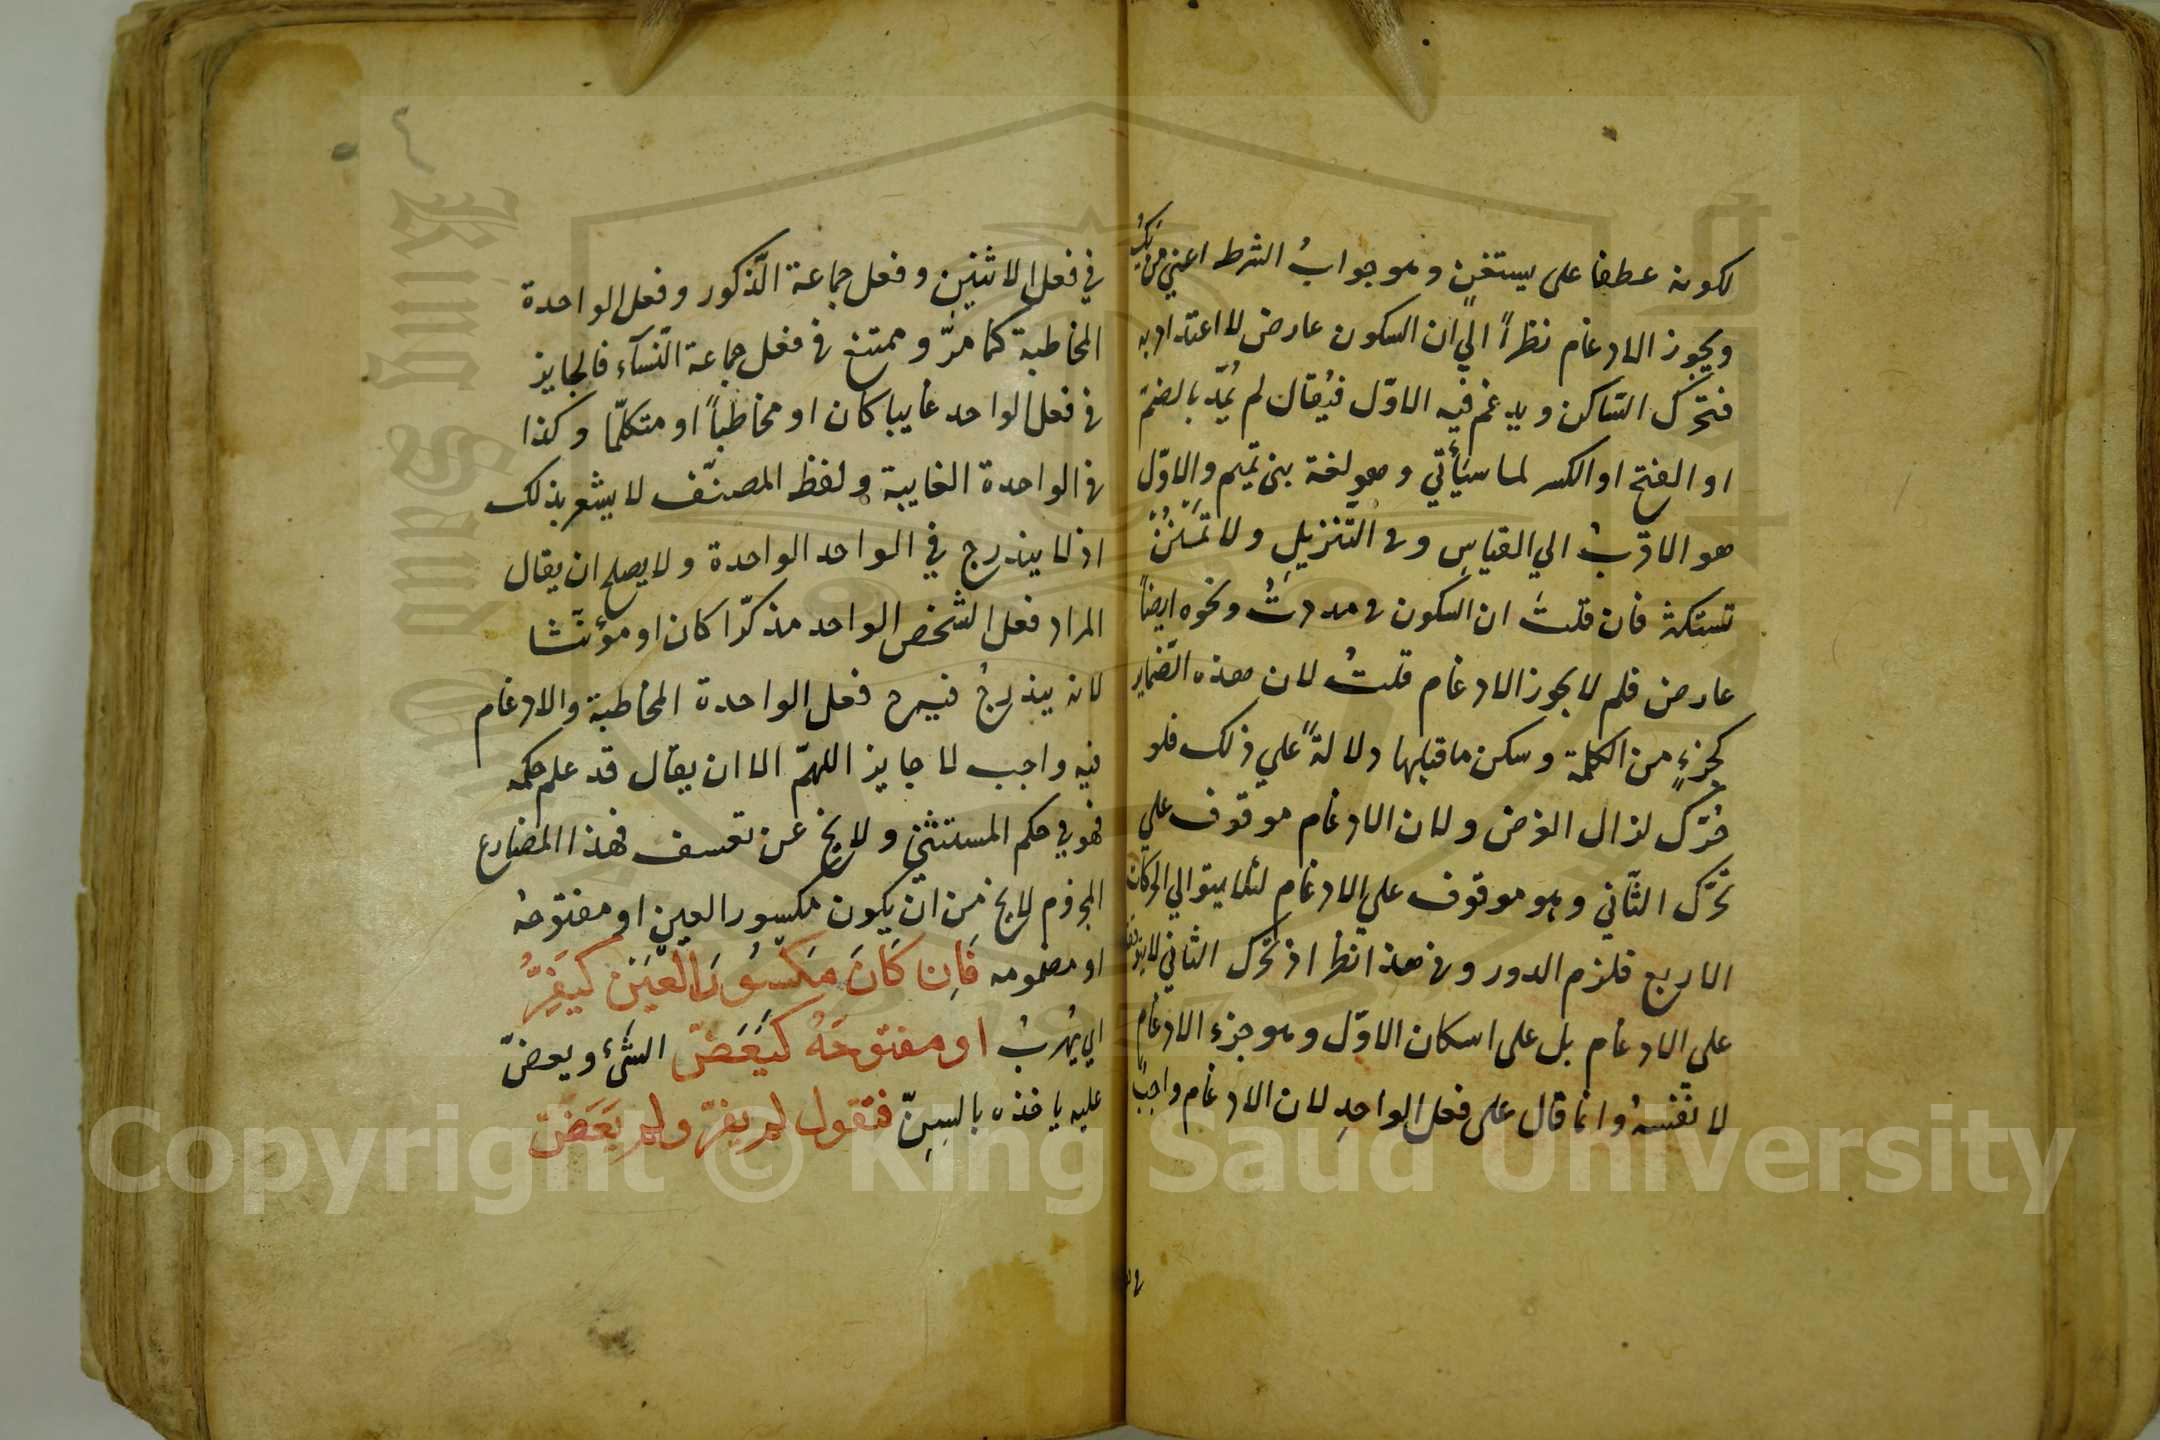 لكونه عطفا على يستغن وهو جواب الشرط اعني من يك
ويجوز الادغام نظراً الي ان السكون عارض لا اعتداد به
فتحرك الساكن ويدغم فيه الاوّل فيُقال لم يُمدّ بالضم
او الفتح او الكسر لما سيأتي وهو لغة بنى تميم والاوّل
هو الاقربُ الي القياسِ وفى التّنزيلِ ولا تَمْنُنْ
تستكثر فان قلتَ ان السكون فى مددتُ ونحوه ايضاً
عارض فلم لا يجوز الادغام قلتُ لان هذه الضّماير
كجزءٍ من الكلمة وسكن ما قبلها دلالةً علي ذلك فلو
حُرّك لزال الغرض ولان الادغام موقوف علي
تحرّك الثّاني وهو موقوف علي الادغام لئلا يتوالي الحركات
الاربع فلزم الدور وفى هذا نظر اذ تحرّك الثاني لا يتوقف
على الادغام بل على اسكان الاوّل وهو جزء الادغام
لا نفسهُ وانما قال على فعل الواحدِ لان الادغام واجبٌ
في فعل الاثنين وفعل جماعة الّذكور وفعل الواحدة
المخاطبة كما مرّ وممتنع فى فعل جماعة النّسآء فالجايز
فى فعل الواحد غايبا كان او مخاطباً او متكلّما وكذا
فى الواحدة الغايبة ولفظ المصنّف لا يشعر بذلك
اذ لا يندرج في الواحد الواحدة ولا يصلح ان يقال
المراد فعل الشّخص الواحد مذكرّا كان او مؤنّثا
لانه يندرجُ فيه ح فعل الواحدة المخاطبة والادغام
فيه واجب لا جايز اللهمّ الا ان يقال قد علم حكمه
فهو في حكم المستثني ولا يخ عن تعسف فهذا المضارع
المجزوم لا يخ من ان يكون مكسور العين او مفتوحه
او مضمومه فَاِن كَانَ مَكسُورَ الْعَيْن كَيَفِرُّ
اي يَهْرُبُ او مفتوحَهُ كَيَعَضّ الشّىءَ ويعضّ
عليه ياخذه بالسِنِّ فتقول لم يفرّ ولم يَعَضّ